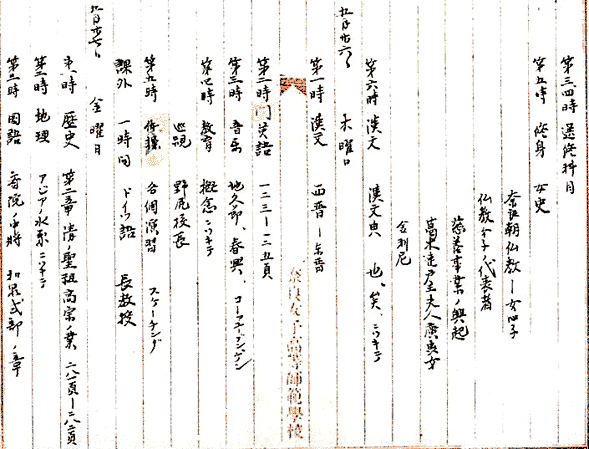 第三、四時 選修科目
第五時 修身 女史
奈良朝仏教ー女心子
仏教分子ノ代表者
慈善事業ノ興起
葛木連戸主夫人廣虫女
舎利尼
第六時 漢文 漢文典 也、矣、ニツキテ
五月廿六日 木曜日
第一時 漢文 西晋ー東晋
第二時 英語 一二三ー一二五頁
第三時 音楽 地久節、春興、コールユーブンゲン
第四時 教育 概念ニツキテ
巡視 野尻校長
第五時 体操 各個演習 スケーチング
課外 一時間 ドイツ語 長教授
五月廿七日 金曜日
第一時 歴史 第二章 清ノ聖祖高宗ノ業 二八一頁ー二八三頁
第二時 地理 アジアノ水系ニツキテ
第三時 国語 斎院ノ中将 和泉式部ノ章
奈良女子高等師範學校